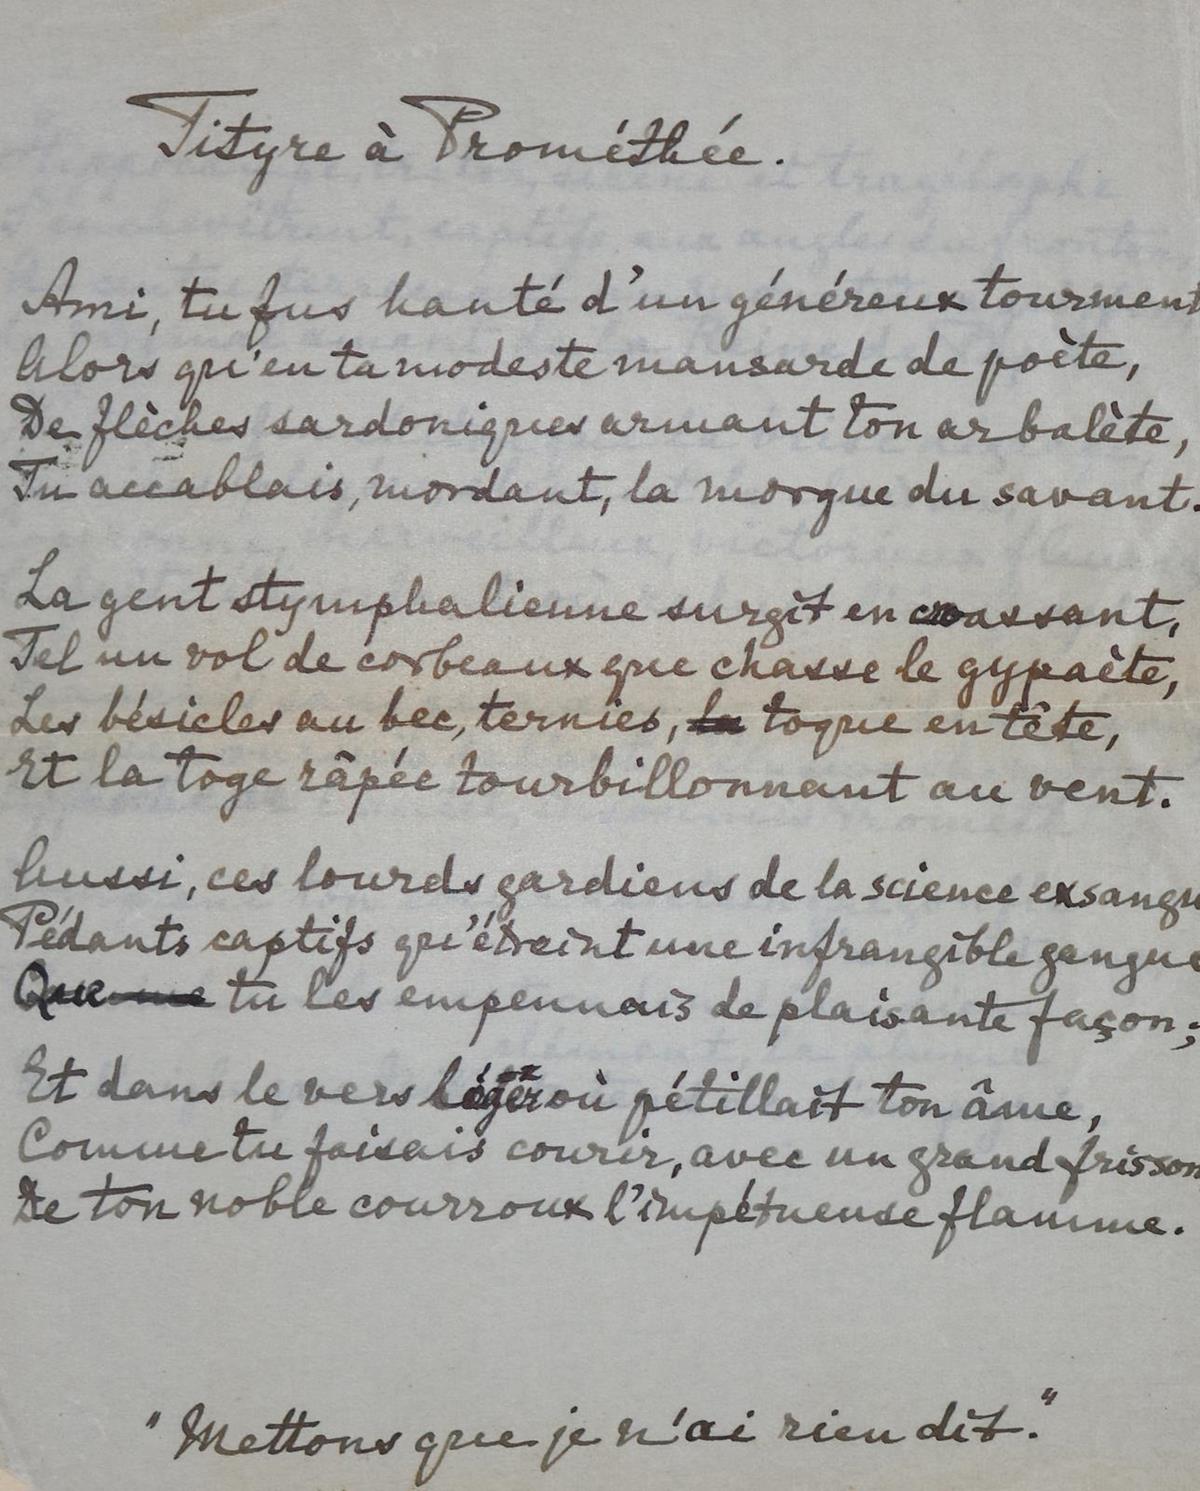 Tityre à Prométhée.
Ami, tu fus hanté d'un généreux tourment
Alors qu'en ta modeste mansarde de poète,
De flèches sardoniques armant ton arbalète,
Tu accablais, mordant, la morgue du savant.
La gent stymphalienne surgit en croassant,
Tel un vol de corbeaux que chasse le gypaète,
Les bésicles au bec, ternies, la toque en tête,
Et la toge râpée tourbillonnant au vent.
Aussi, ces lourds gardiens de la science exsangu
Pédants captifs qu'étreint une infrangible gangue
Que tu les empennais de plaisante façon;
Et dans le vers léger où pétillait ton âme,
Comme tu faisais courir, avec un grand frisson
De ton noble courroux l'impétueuse flamme.
"Mettons que je n'ai rien dit."